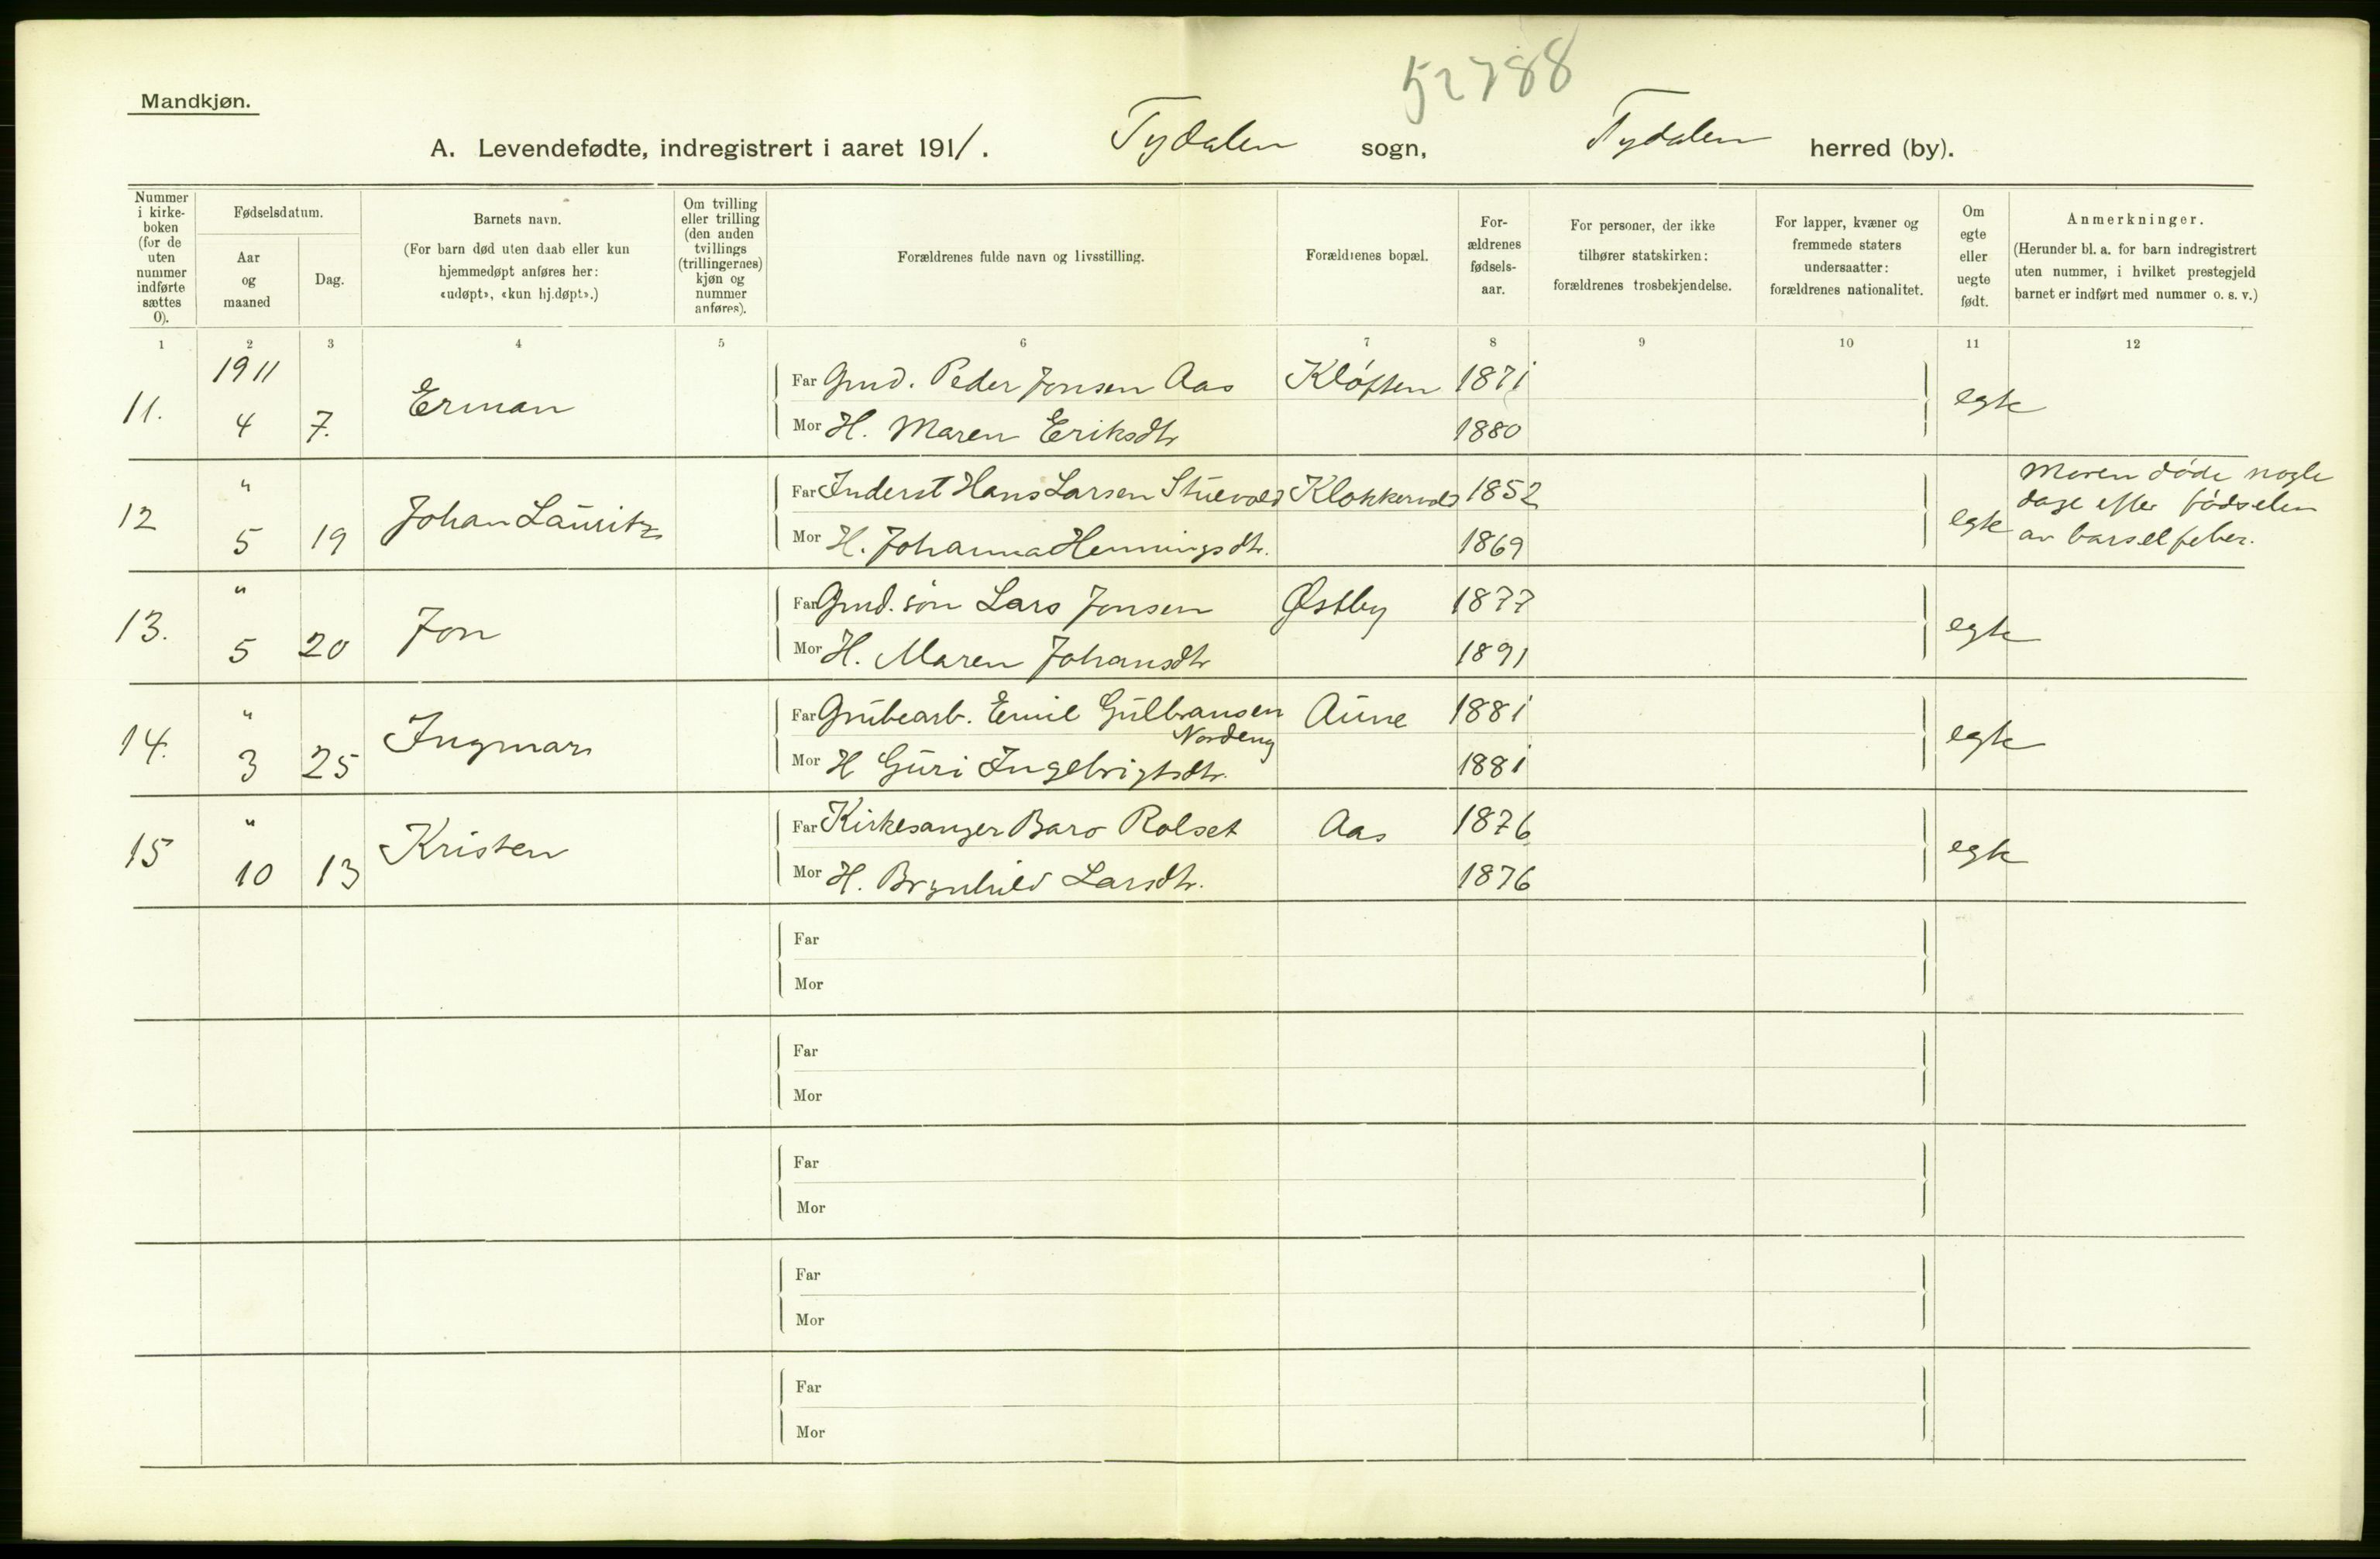 52788
Mandkjøn.
A. Levendefødte, indregistrert i aaret 1911. Tydalen sogn, Tydalen herred (by).
Nummer i kirke-boken (for de uten nummer indførte sættes 0).
Fødselsdatum.
Aar og maaned
Dag.
Barnets navn.
(For barn død uten daab eller kun hjemmedøpt anføres her: «udøpt», «kun hj.døpt».)
Om tvilling eller trilling (den anden tvillings (trillingernes) kjøn og nummer anføres).
Forældrenes fulde navn og livsstilling.
Forældrenes bopæl.
For-ældrenes fødsels-aar.
For personer, der ikke tilhører statskirken: forældrenes trosbekjendelse.
For lapper, kvæner og fremmede staters undersaatter: forældrenes nationalitet.
Om egte eller uegte født.
Anmerkninger.
(Herunder bl. a. for barn indregistrert uten nummer, i hvilket prestegjeld barnet er indført med nummer o. s. v.)
1 2 3 4 5 6 7 8 9 10 11 12
11. 1911 4 7. Erman Far Gmd. Peder Jonsen Aas Kløften 1871 egte
Mor H. Maren Eriksdtr 1880
12 " 5 19 Johan Lauritz Far Inderst Hans Larsen Stuevold Klokkervold 1852 egte Moren døde nogle
dage efter fødselen
av barselfeber.
Mor H. Johanna Henningsdtr. 1869
13. " 5 20 Jon Far Gmd. søn Lars Jonsen Østby 1877 egte
Mor H. Maren Johansdtr 1891
14. " 3 25 Ingmar Far Grubearb. Emil Gulbransen Aune 1881 egte
Nordeng
Mor H Guri Ingebrigtsdtr. 1881
15 " 10 13 Kristen Far Kirkesanger Baro Rolset Aas 1876 egte
Mor H. Brynhild Larsdtr. 1876
Far
Mor
Far
Mor
Far
Mor
Far
Mor
Far
Mor